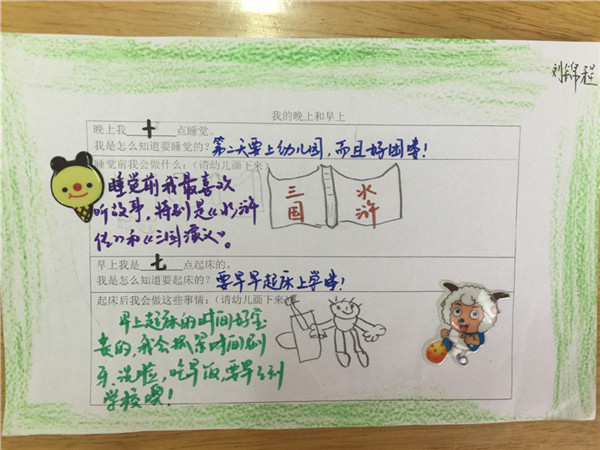 刘锦程
我的晚上和早上
晚上我 十 点睡觉。
我是怎么知道要睡觉的？第二天要上幼儿园，而且好困喽！
睡觉前我会做什么：（请幼儿画下来）
睡觉前我最喜欢
听故事，特别是《水浒
传》和《三国演义》。
三国
水浒
早上我是 七 点起床的。
我是怎么知道要起床的？要早早起床上学喽！
起床后我会做这些事情：（请幼儿画下来）
早上起床的时间好宝
贵的，我会抓紧时间刷
牙、洗脸，吃早饭，要早早到
学校喽！